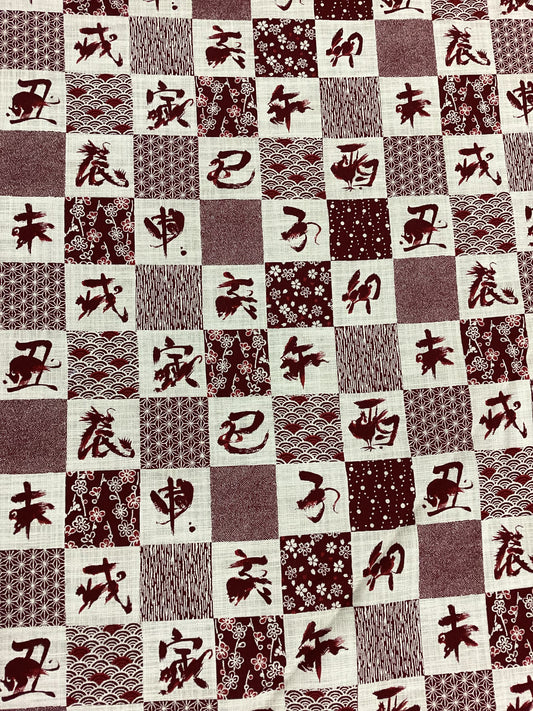 戌 亥 卯 辰
丑 寅 午 未 申
辰 巳 酉 戌
未 申 子 丑
戌 亥 卯 辰
丑 寅 午 未
辰 巳 酉 戌
未 申 子 丑
戌 亥 卯 辰
丑 寅 午 未